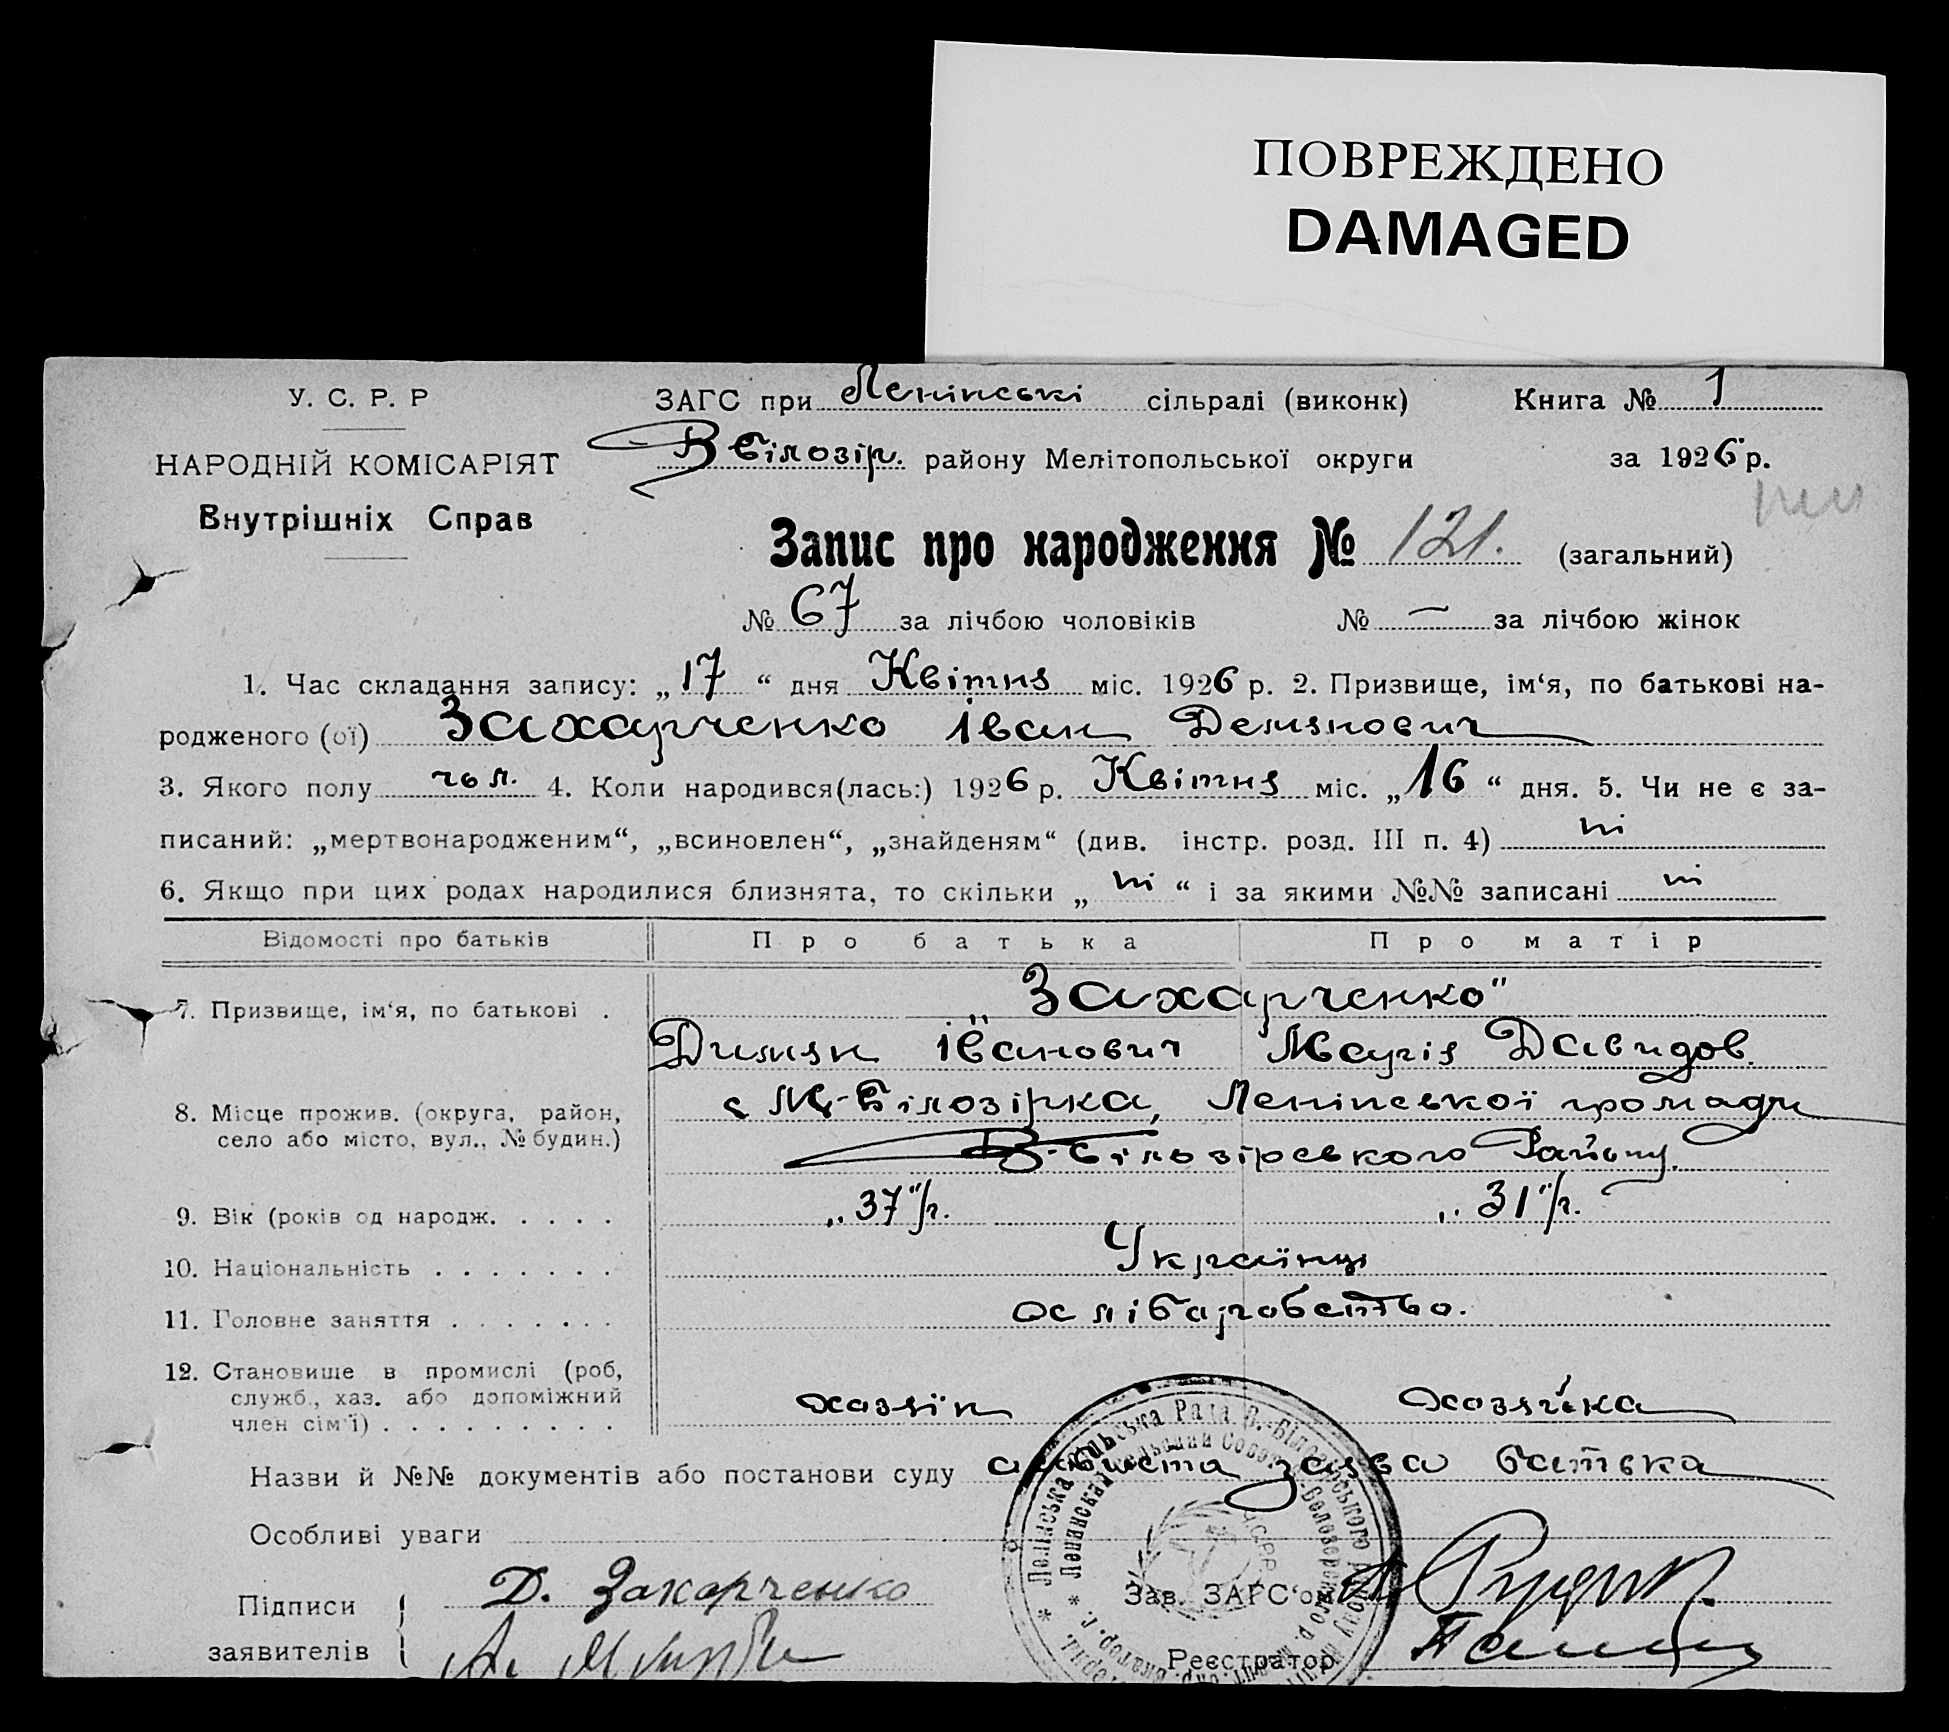 ПОВРЕЖДЕНО
DAMAGED
У. С. Р. Р
НАРОДНІЙ КОМІСАРІЯТ
Внутрішніх Справ
ЗАГС при Ленінські сільраді (виконк) Книга № 1
В Білозір. району Мелітопольської округи за 1926 р.
Запис про народження № 121. (загальний)
№ 67 за лічбою чоловіків № — за лічбою жінок
1. Час складання запису: „17“ дня Квітня міс. 1926 р. 2. Призвище, ім‘я, по батькові на-
родженого (ої) Захарченко Іван Демянович
3. Якого полу чол. 4. Коли народився(лась:) 1926 р. Квітня міс. „16“ дня. 5. Чи не є за-
писаний: „мертвонародженим“, „всиновлен“, „знайденям“ (див. інстр. розд. III п. 4) ні
6. Якщо при цих родах народилися близнята, то скільки „ні“ і за якими №№ записані ні
Відомості про батьків Про батька Про матір
7. Призвище, ім‘я, по батькові . „Захарченко"
Димян Іванович Марія Давидов.
8. Місце прожив. (округа, район, с М-Білозірка, Ленінської громади
село або місто, вул., № будин.) В-Білозірського Району.
9. Вік (років од народж. . . . . „37"/р. „31"/р.
10. Національність . . . . . . . Українці
11. Головне заняття . . . . . . . хлібаробство.
12. Становище в промислі (роб,
служб., хаз. або допоміжний хазяїн хозяйка
член сім‘ї) . . . . . . . . .
Назви й №№ документів або постанови суду особиста заява батька
Особливі уваги
Підписи Д. Захарченко Зав. ЗАГС‘ом
заявителів Реєстратор